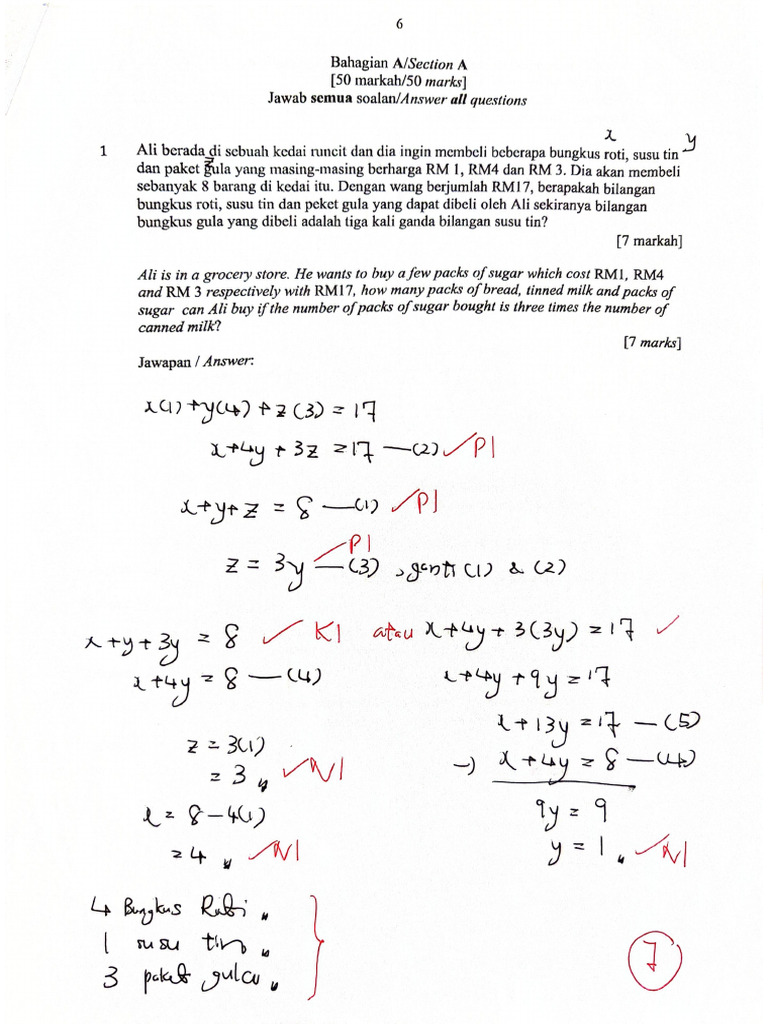 6
Bahagian A/Section A
[50 markah/50 marks]
Jawab semua soalan/Answer all questions
x y
1 Ali berada di sebuah kedai runcit dan dia ingin membeli beberapa bungkus roti, susu tin
z
dan paket gula yang masing-masing berharga RM 1, RM4 dan RM 3. Dia akan membeli
sebanyak 8 barang di kedai itu. Dengan wang berjumlah RM17, berapakah bilangan
bungkus roti, susu tin dan peket gula yang dapat dibeli oleh Ali sekiranya bilangan
bungkus gula yang dibeli adalah tiga kali ganda bilangan susu tin?
[7 markah]
Ali is in a grocery store. He wants to buy a few packs of sugar which cost RM1, RM4
and RM 3 respectively with RM17, how many packs of bread, tinned milk and packs of
sugar can Ali buy if the number of packs of sugar bought is three times the number of
canned milk?
[7 marks]
Jawapan / Answer:
x(1) + y(4) + z(3) = 17
x + 4y + 3z = 17 — (2) ✓ P1
x + y + z = 8 — (1) ✓ P1
z = 3y — (3) ✓ P1 , ganti (1) & (2)
x + y + 3y = 8 ✓ K1 atau x + 4y + 3(3y) = 17 ✓
x + 4y = 8 — (4) x + 4y + 9y = 17
x + 13y = 17 — (5)
z = 3(1) -) x + 4y = 8 — (4)
= 3 ✓ N1
x = 8 - 4(1) 9y = 9
= 4 ✓ N1 y = 1 ✓ N1
4 Bungkus Roti
1 susu tin
3 paket gula
7